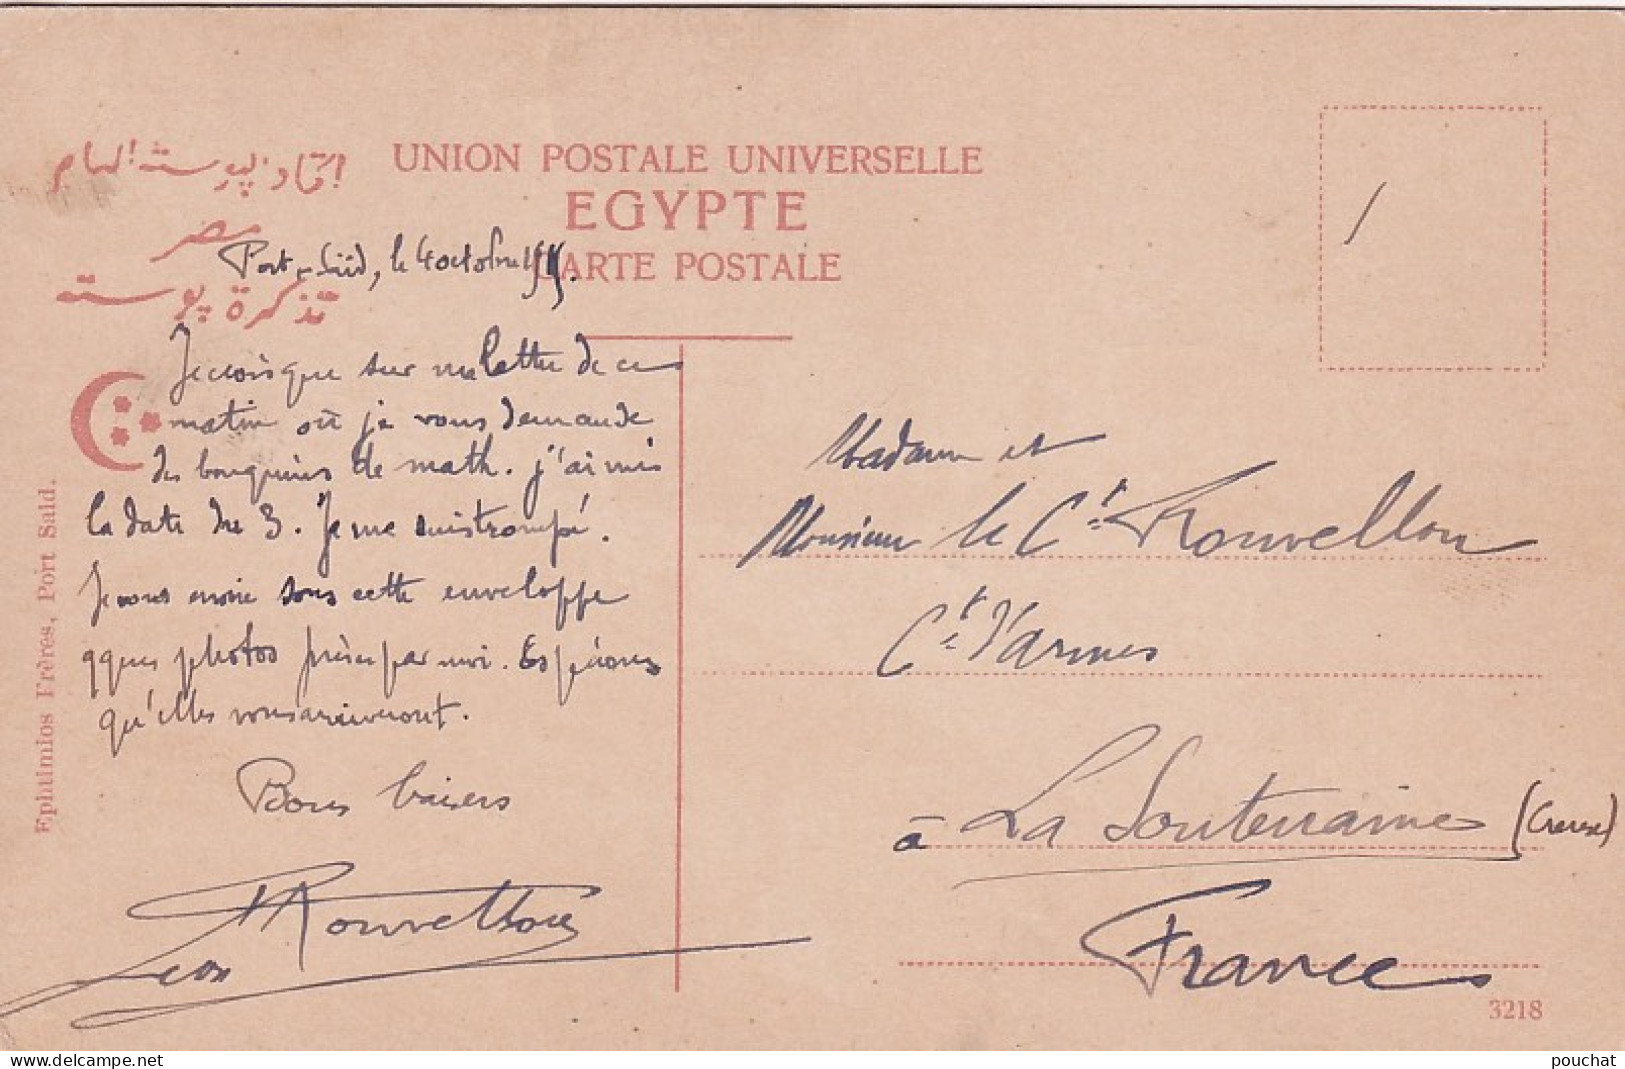 اتحاد پوسته العام
مصر
تذكرة پوسته
UNION POSTALE UNIVERSELLE
EGYPTE
CARTE POSTALE
Port-Saïd, le 4 octobre
Je crois que sur ma lettre de ce
matin où je vous demande
des bouquins de math. j'ai mis
la date du 3. Je me suis trompé.
Je vous envoie sous cette enveloppe
qques photos prises par moi. Espérons
qu'elles vous arriveront.
Bons baisers
Léon Rouvellou
Madame et
Monsieur le Ct Rouvellou
Ct d'armes
à La Souterraine (Creuse)
France
Ephtimios Frères, Port Said.
3218
pouchat